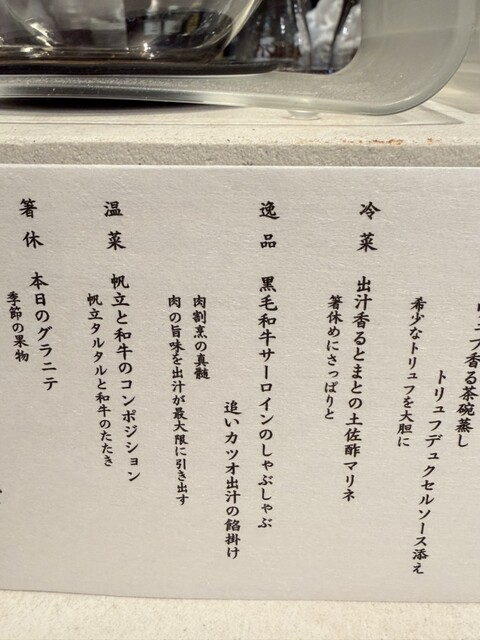 香る茶碗蒸し
トリュフデュクセルソース添え
希少なトリュフを大胆に
冷菜 出汁香るとまとの土佐酢マリネ
箸休めにさっぱりと
逸品 黒毛和牛サーロインのしゃぶしゃぶ
追いカツオ出汁の餡掛け
肉割烹の真髄
肉の旨味を出汁が最大限に引き出す
温菜 帆立と和牛のコンポジション
帆立タルタルと和牛のたたき
箸休 本日のグラニテ
季節の果物